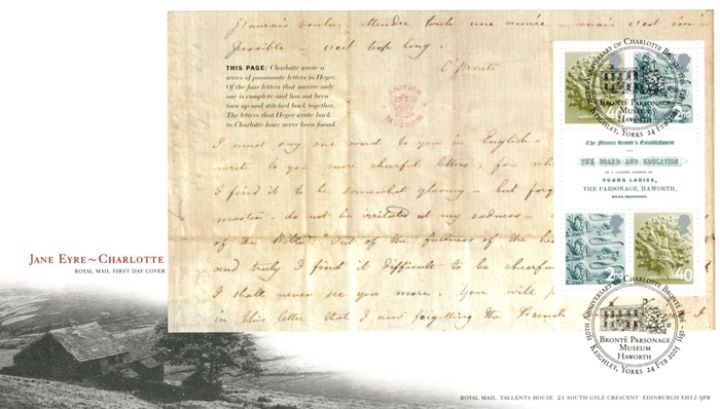 français voulu attendre toute une année – mais c'est im-
possible – c'est trop long –
C Brontë
THIS PAGE: Charlotte wrote a
series of passionate letters to Heger.
Of the four letters that survive only
one is complete and has not been
torn up and stitched back together.
The letters that Heger wrote back
to Charlotte have never been found.
I must say one word to you in English –
write to you more cheerful letters, for when
I find it to be somewhat gloomy – but forg
master – do not be irritated at my sadness –
of the Bible: "Out of the fullness of the hea
and truly I find it difficult to be cheerfu
I shall never see you more. You will
in this letter that I am forgetting the French
ANNIVERSARY OF CHARLOTTE BRONTË
BRONTË PARSONAGE
MUSEUM
HAWORTH
KEIGHLEY, YORKS 24 FEB
40
2nd
The Misses Brontë's Establishment
FOR
THE BOARD AND EDUCATION
OF A LIMITED NUMBER OF
YOUNG LADIES,
THE PARSONAGE, HAWORTH,
NEAR BRADFORD.
2
40
150TH ANNIVERSARY OF CHARLOTTE BRONTË 1816 - 1855
BRONTË PARSONAGE
MUSEUM
HAWORTH
KEIGHLEY, YORKS 24 FEB 2005
JANE EYRE~CHARLOTTE
ROYAL MAIL FIRST DAY COVER
ROYAL MAIL TALLENTS HOUSE 21 SOUTH GYLE CRESCENT EDINBURGH EH12 9PB